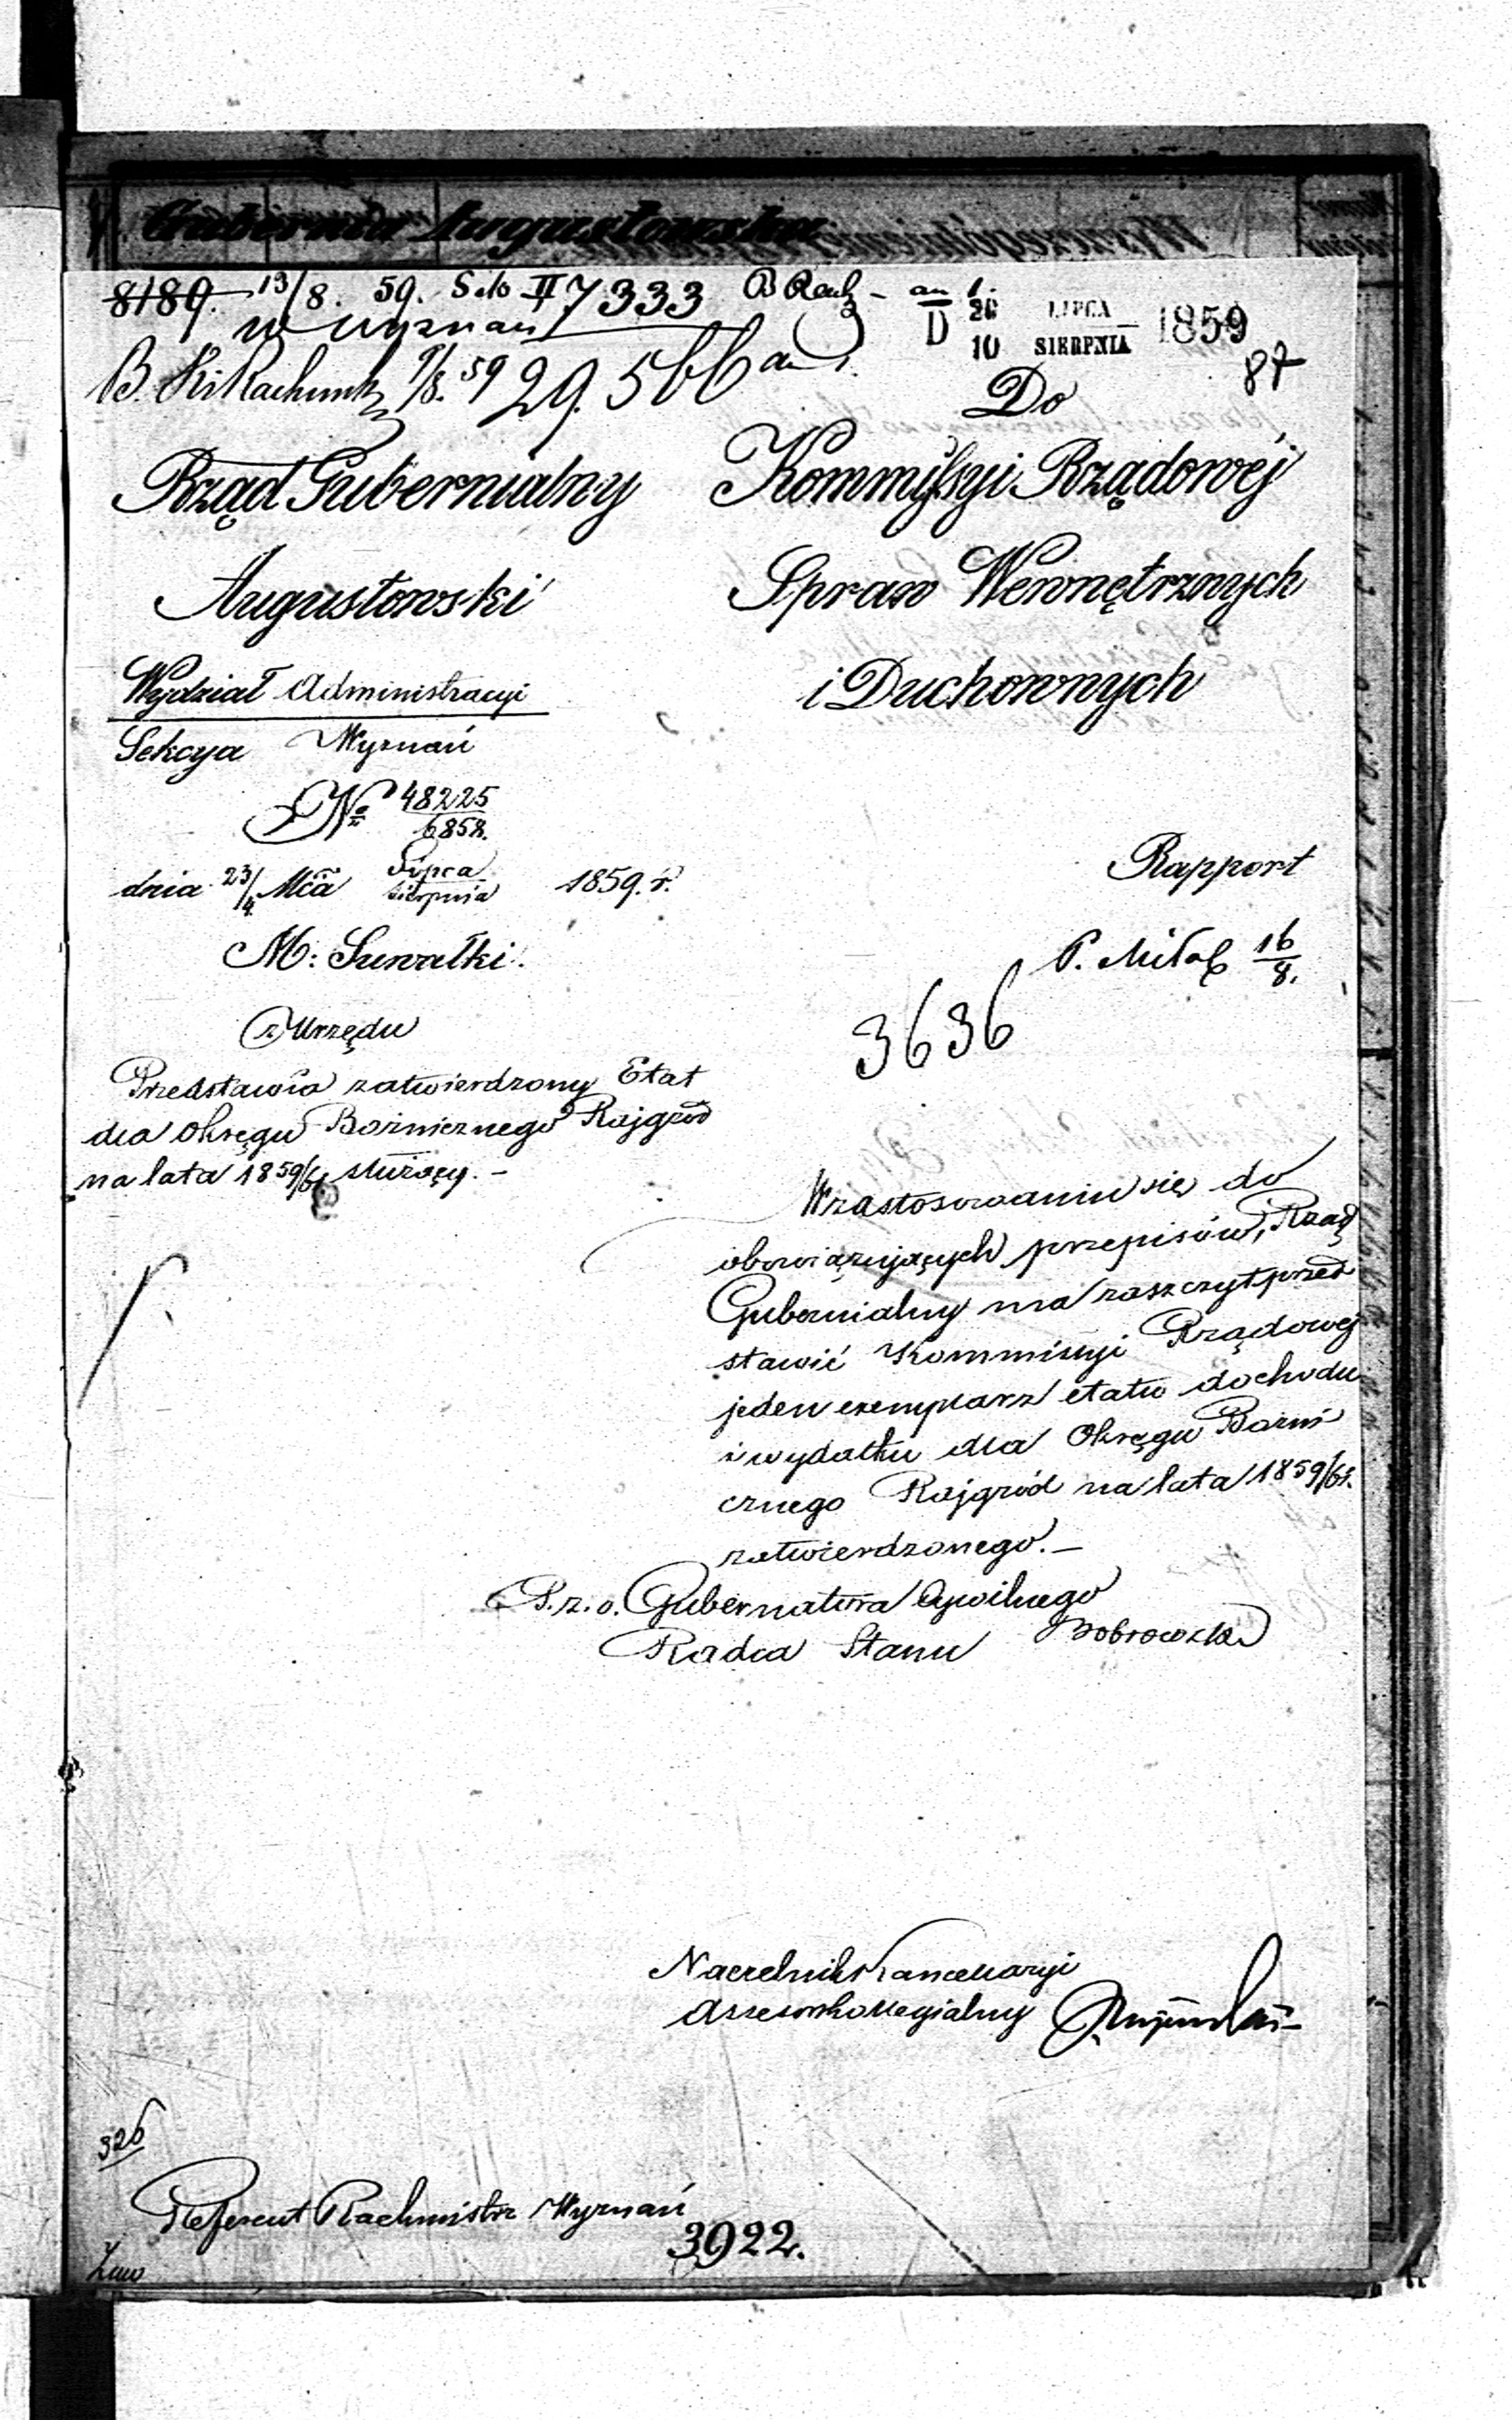 Gubernia Augustowska
8189. 13/8. 59. Sek II 7333 B Rach - an 1.
w wyznań
D 20 LIPCA 1859
10 SIERPNIA
87
B. Kś Rachunk 9/8. 59 29.566 an 1.
Do
Rząd Gubernialny
Augustowski
Wydział Administracyi
Sekcya Wyznań
№ 48225
6858.
dnia 23/4 Mca Lipca
Sierpnia 1859. r.
M: Suwałki.
z Urzędu
Przedstawia zatwierdzony Etat
dla Okręgu Bożnicznego Rajgród
na lata 1859/61 służący. -
Kommissyi Rządowéj
Spraw Wewnętrznych
i Duchownych
Rapport
P. 16
8.
3636
W zastosowaniu się do
obowiązujących przepisów, Rząd
Gubernialny ma zaszczyt przed
stawić Kommissyi Rządowej
jeden exemplarz etatu dochodu
i wydatku dla Okręgu Bożni
cznego Rajgród na lata 1859/61.
zatwierdzonego. -
P. z. o. Gubernatora Cywilnego
Radca Stanu
Naczelnik Kancellaryi
Assesor Kollegialny
326
Referent Rachmistrz Wyznań
3922.